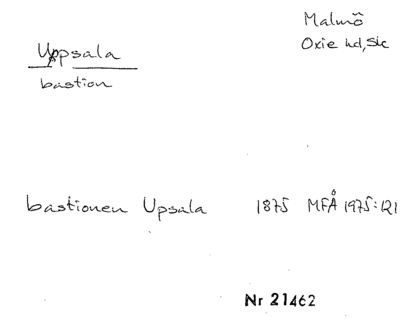 Malmö
Oxie hd, Sk
Uppsala
bastion
bastionen Upsala 1875 MFÅ 1975:121
Nr 21462